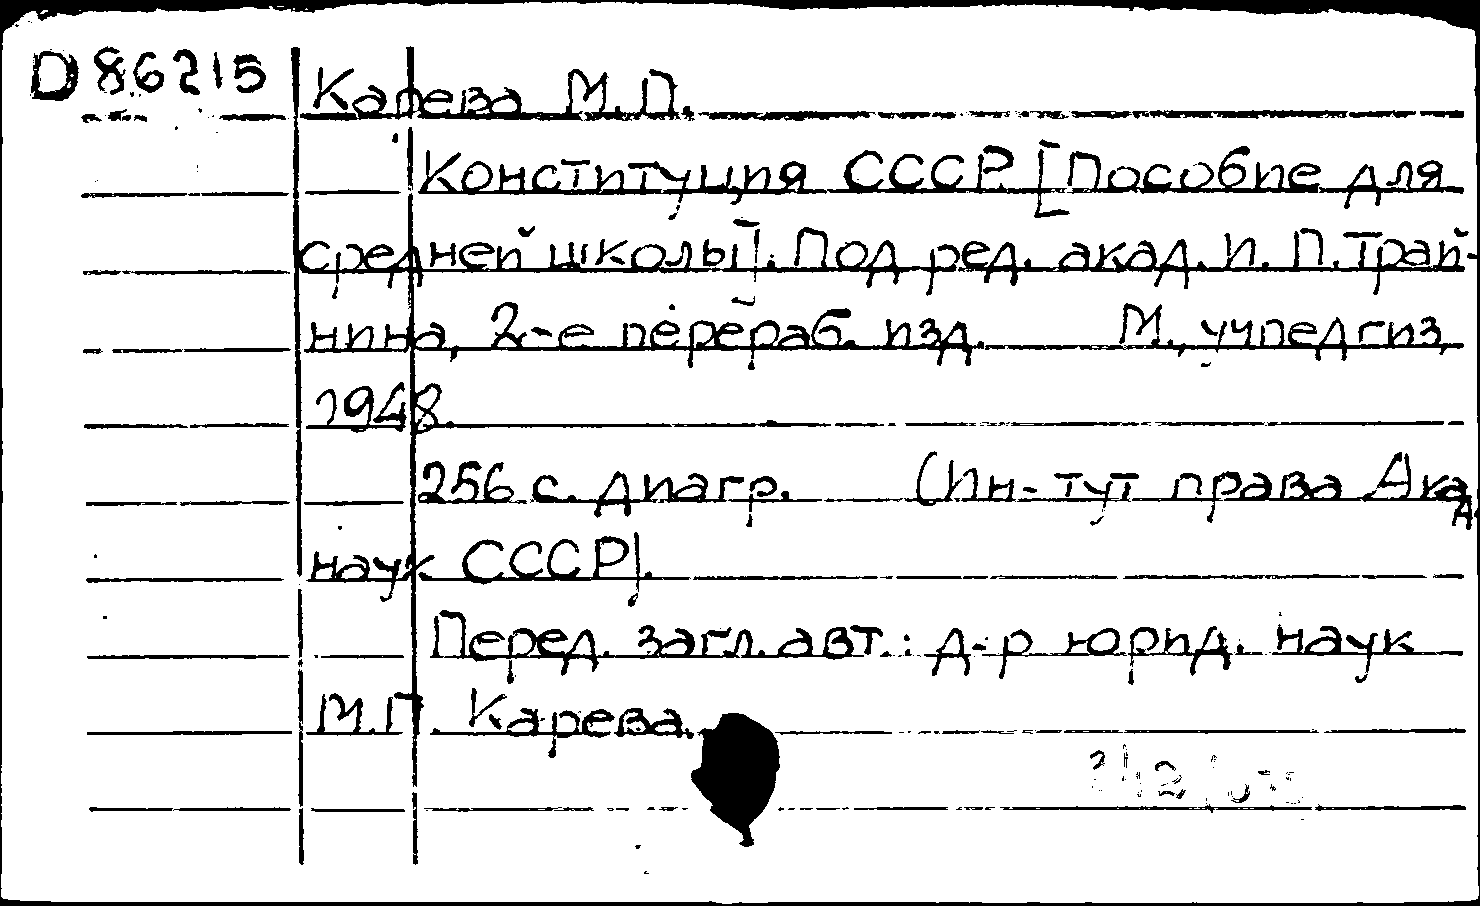 D 86215
Карева М.П.
Конституция СССР. [Пособие для
средней школы]. Под ред. акад. И. П. Трай-
нина, 2-е перераб. изд. М., учпедгиз,
1948.
256 с. диагр. (Ин-тут права Акад.
наук СССР).
Перед. загл. авт.: д-р юрид. наук
М.П. Карева.